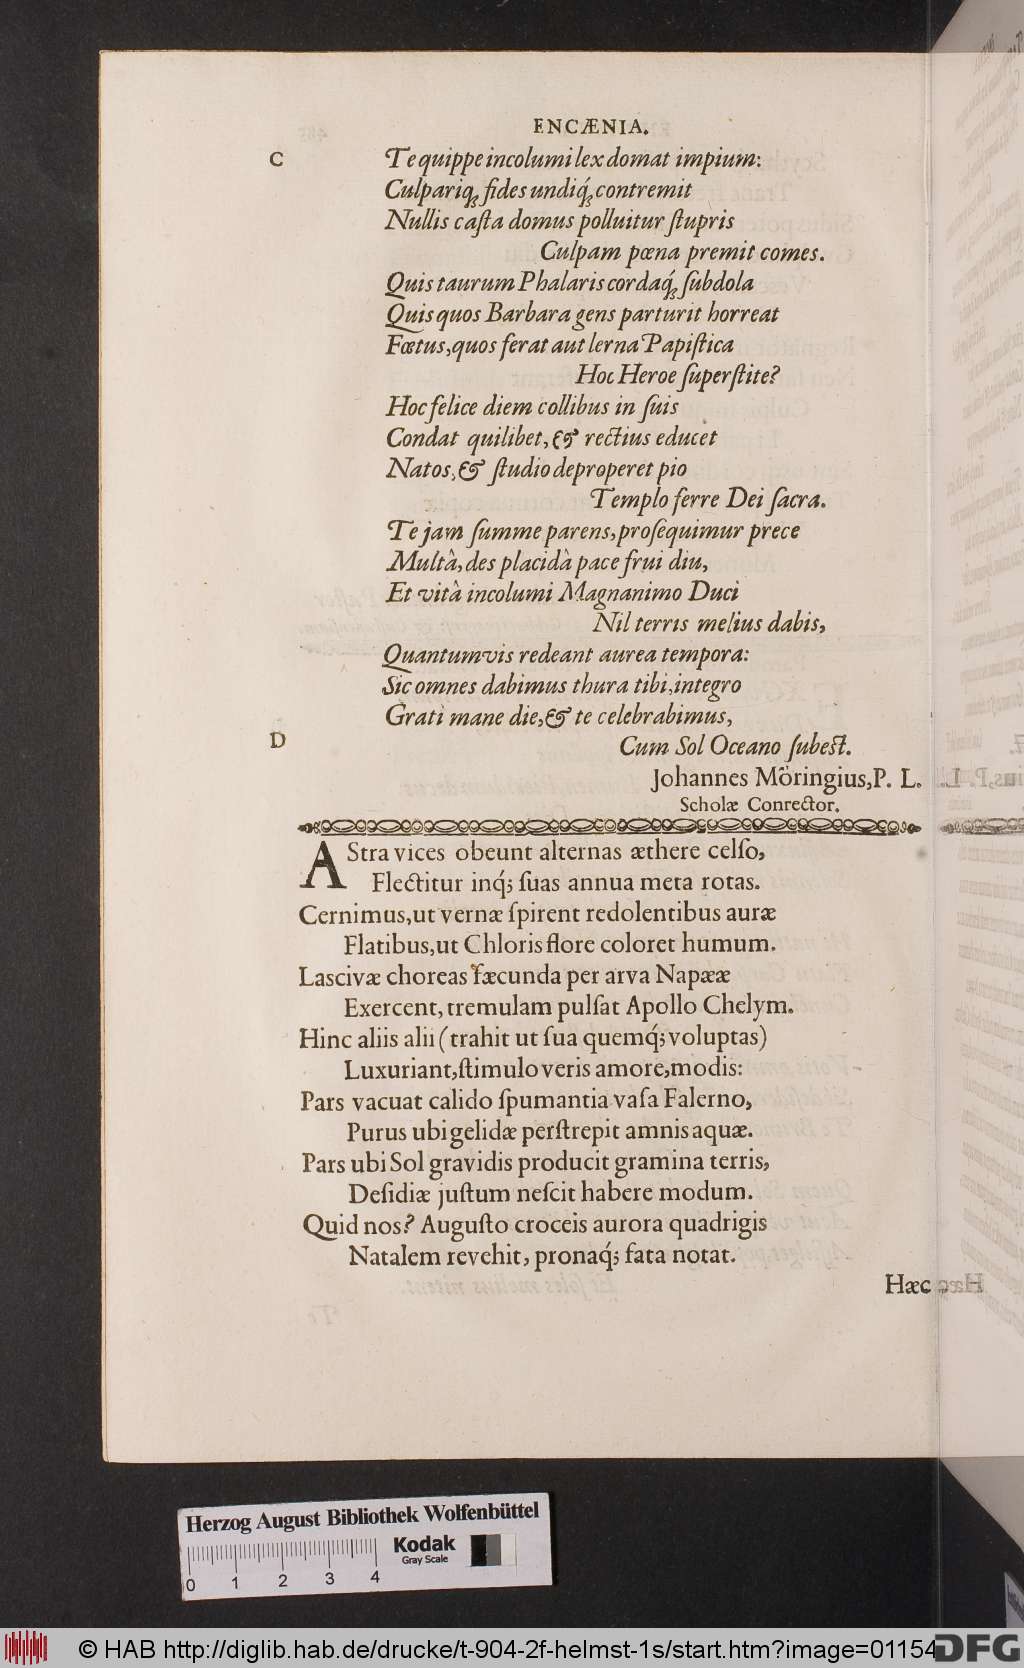 ENCÆNIA.
C
Te quippe incolumi lex domat impium:
Culpariq́; fides undiq́; contremit
Nullis caſta domus polluitur ſtupris
Culpam pœna premit comes.
Quis taurum Phalaris cordaq́; ſubdola
Quis quos Barbara gens parturit horreat
Fœtus, quos ferat aut lerna Papiſtica
Hoc Heroe ſuperſtite?
Hoc felice diem collibus in ſuis
Condat quilibet, & rectius educet
Natos, & ſtudio deproperet pio
Templo ferre Dei ſacra.
Te jam ſumme parens, proſequimur prece
Multâ, des placidà pace frui diu,
Et vità incolumi Magnanimo Duci
Nil terris melius dabis,
Quantumvis redeant aurea tempora:
Sic omnes dabimus thura tibi, integro
Grati mane die, & te celebrabimus,
D
Cum Sol Oceano ſubeſt.
Johannes Möringius, P. L.
Scholæ Conrector.
AStra vices obeunt alternas æthere celſo,
Flectitur inq́; ſuas annua meta rotas.
Cernimus, ut vernæ ſpirent redolentibus auræ
Flatibus, ut Chloris flore coloret humum.
Lascivæ choreas fæcunda per arva Napææ
Exercent, tremulam pulſat Apollo Chelym.
Hinc aliis alii (trahit ut ſua quemq́; voluptas)
Luxuriant, ſtimulo veris amore, modis:
Pars vacuat calido ſpumantia vaſa Falerno,
Purus ubi gelidæ perſtrepit amnis aquæ.
Pars ubi Sol gravidis producit gramina terris,
Deſidiæ juſtum neſcit habere modum.
Quid nos? Auguſto croceis aurora quadrigis
Natalem revehit, pronaq́; fata notat.
Hæc
Herzog August Bibliothek Wolfenbüttel
Kodak
Gray Scale
0 1 2 3 4
© HAB http://diglib.hab.de/drucke/t-904-2f-helmst-1s/start.htm?image=01154
DFG